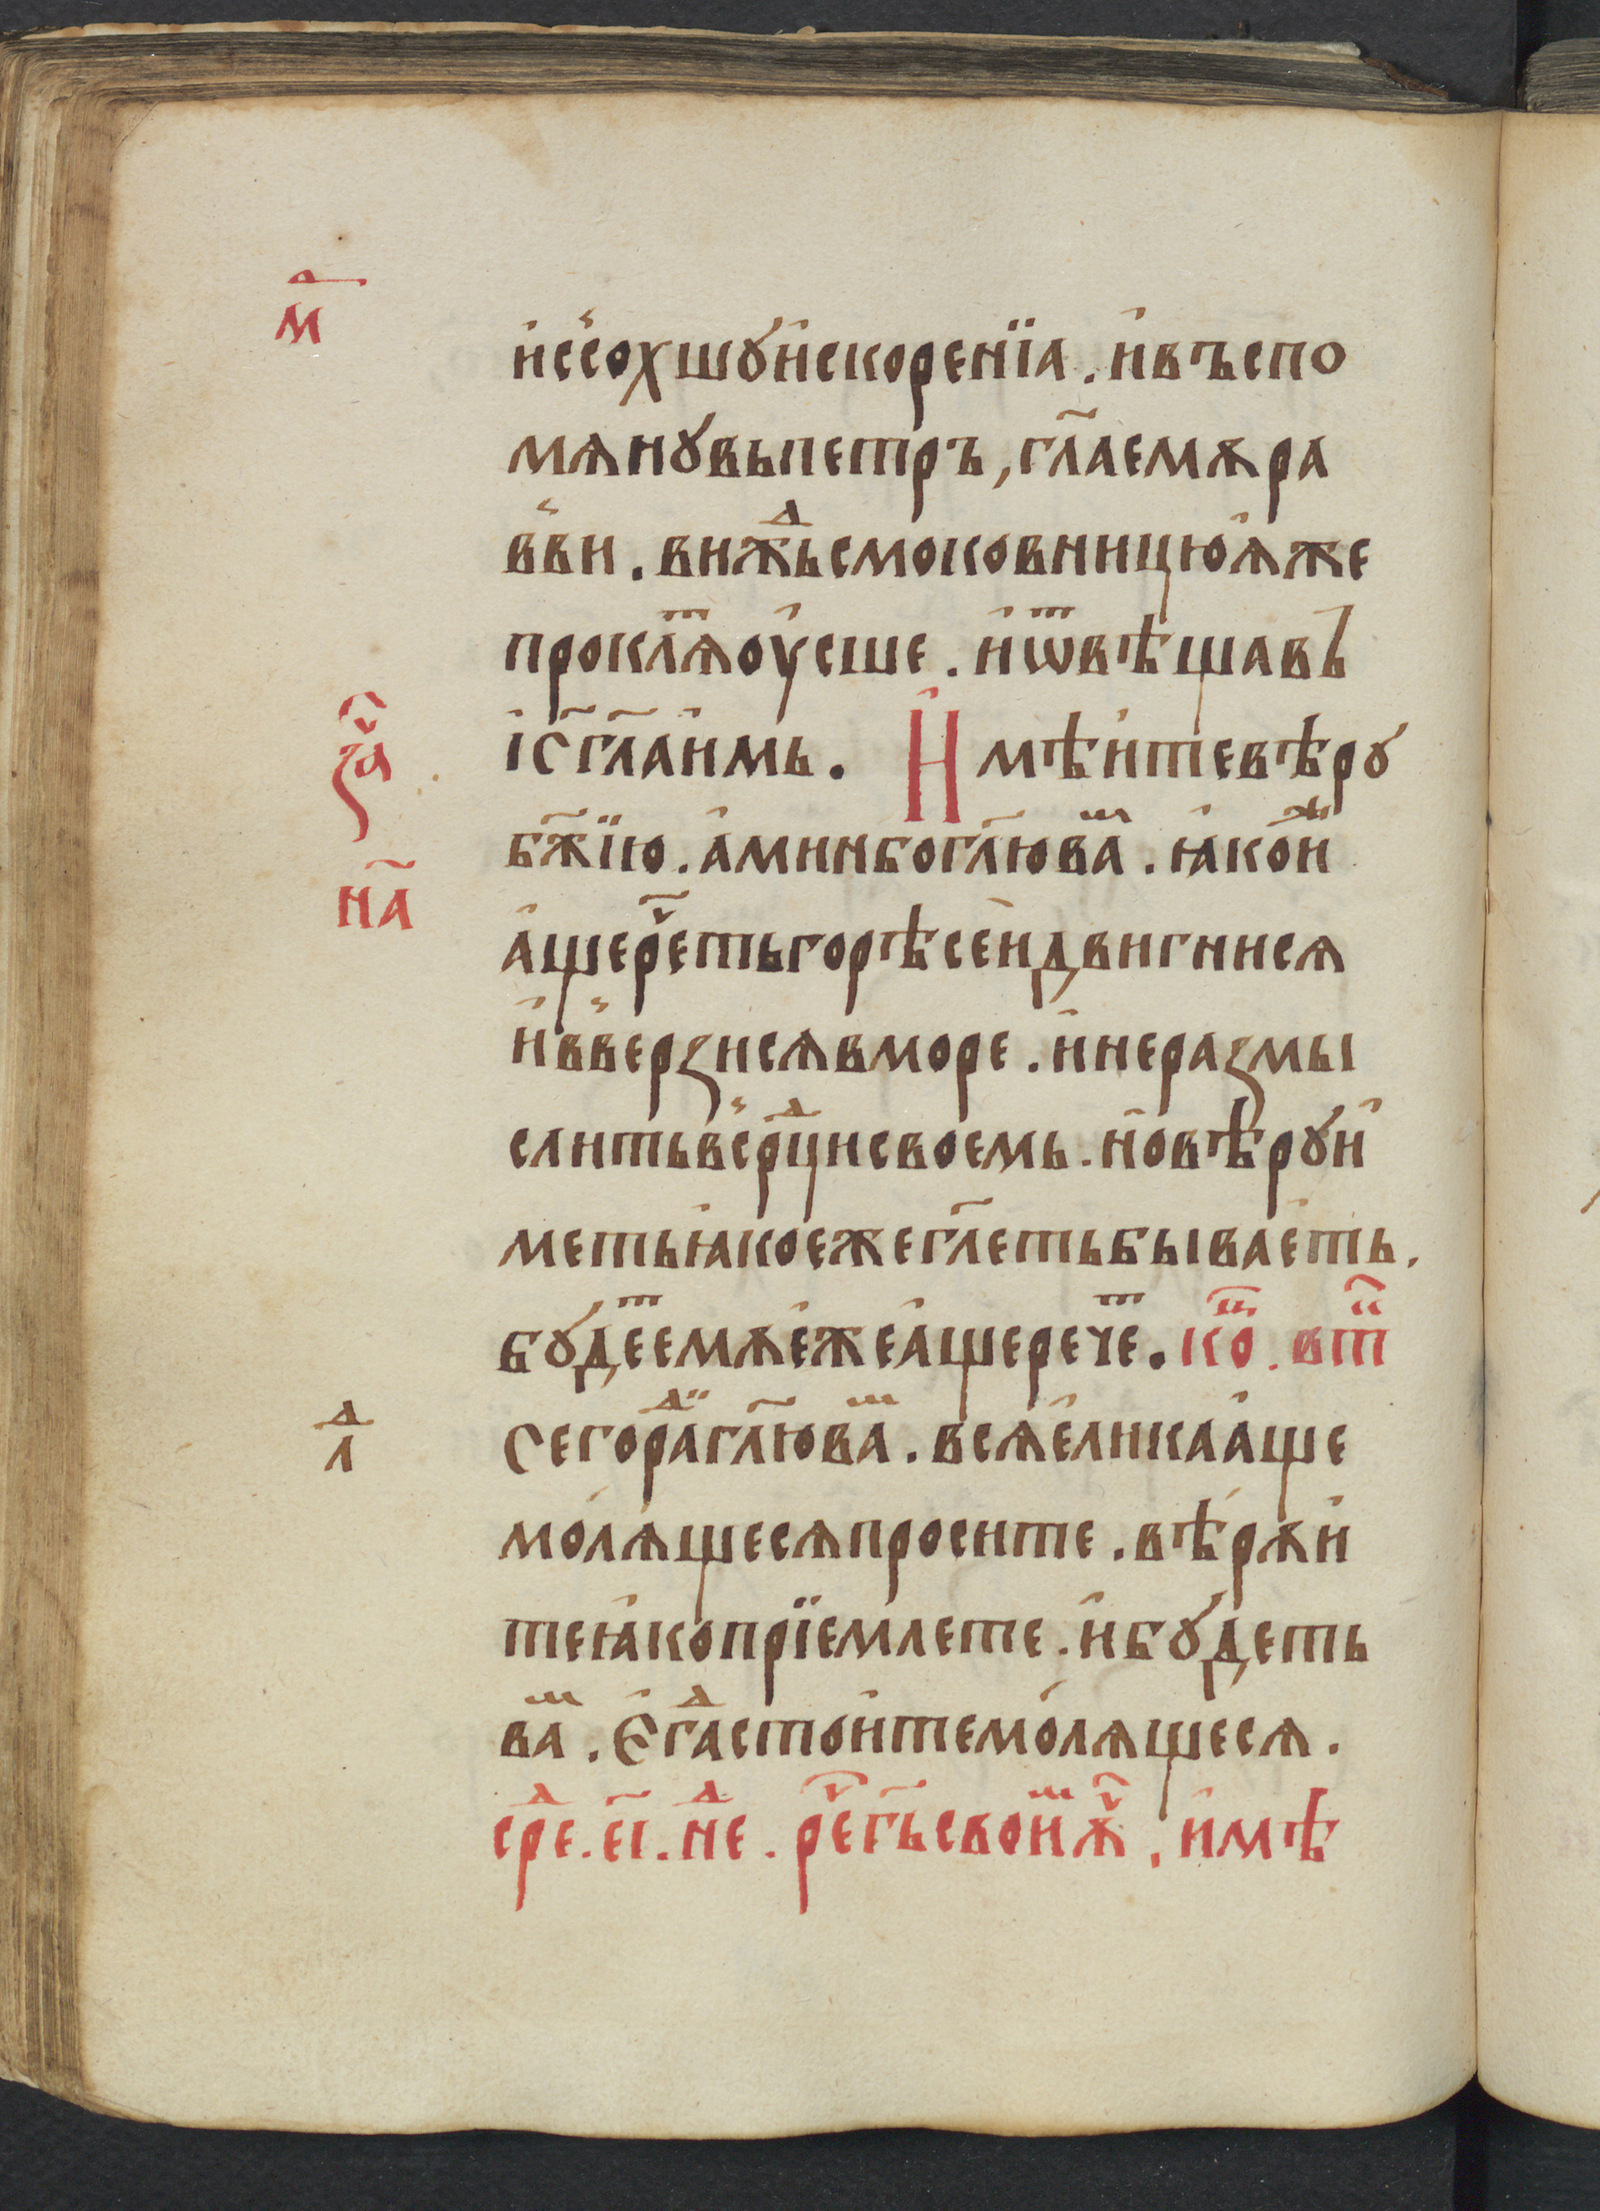 м҃ д
и҆с̾сохшꙋи҆скоренїа . и҆въспо
мѧнꙋвьпетръ, гл҃аемѫра
в̾ви . вижⷣьсмоковницюѧ҆же
проклѧⷮоу҆сше . и҆ѿвѣщавъ
за҃ⷱ
і҆с҃гл҃аи҆мь . Имѣи҆тевѣрꙋ
бж҃їю . а҆минбогл҃ювⷨа . ꙗ҆кої҆ⷤ
на҃
а҆щереⷱ҇тьгорѣсеи҆двигнисѧ
и҆в̾верꙁисѧвморе . и҆нераꙁмы
слитьв̾срⷣцисвоемь . но҆вѣрꙋи҆
метьꙗ҆коежегл҃етьбываеть .
бꙋдеⷮемѫе҆жеа҆щеречеⷮ . коⷰ . втⷪ
л д
Сегораⷣгл҃ювⷨа . всѧе҆ликаа҆ще
молѧщесѧпросите . вѣрѫи҆
теꙗ҆копрїемлете . и҆бꙋдеть
вⷨа . Є҆гⷣастои҆темолѧщесѧ .
среⷣ . еі҃ . неⷣ . реⷱ҇гь҃своиⷨѫⷱ҇ . и҆мѣ